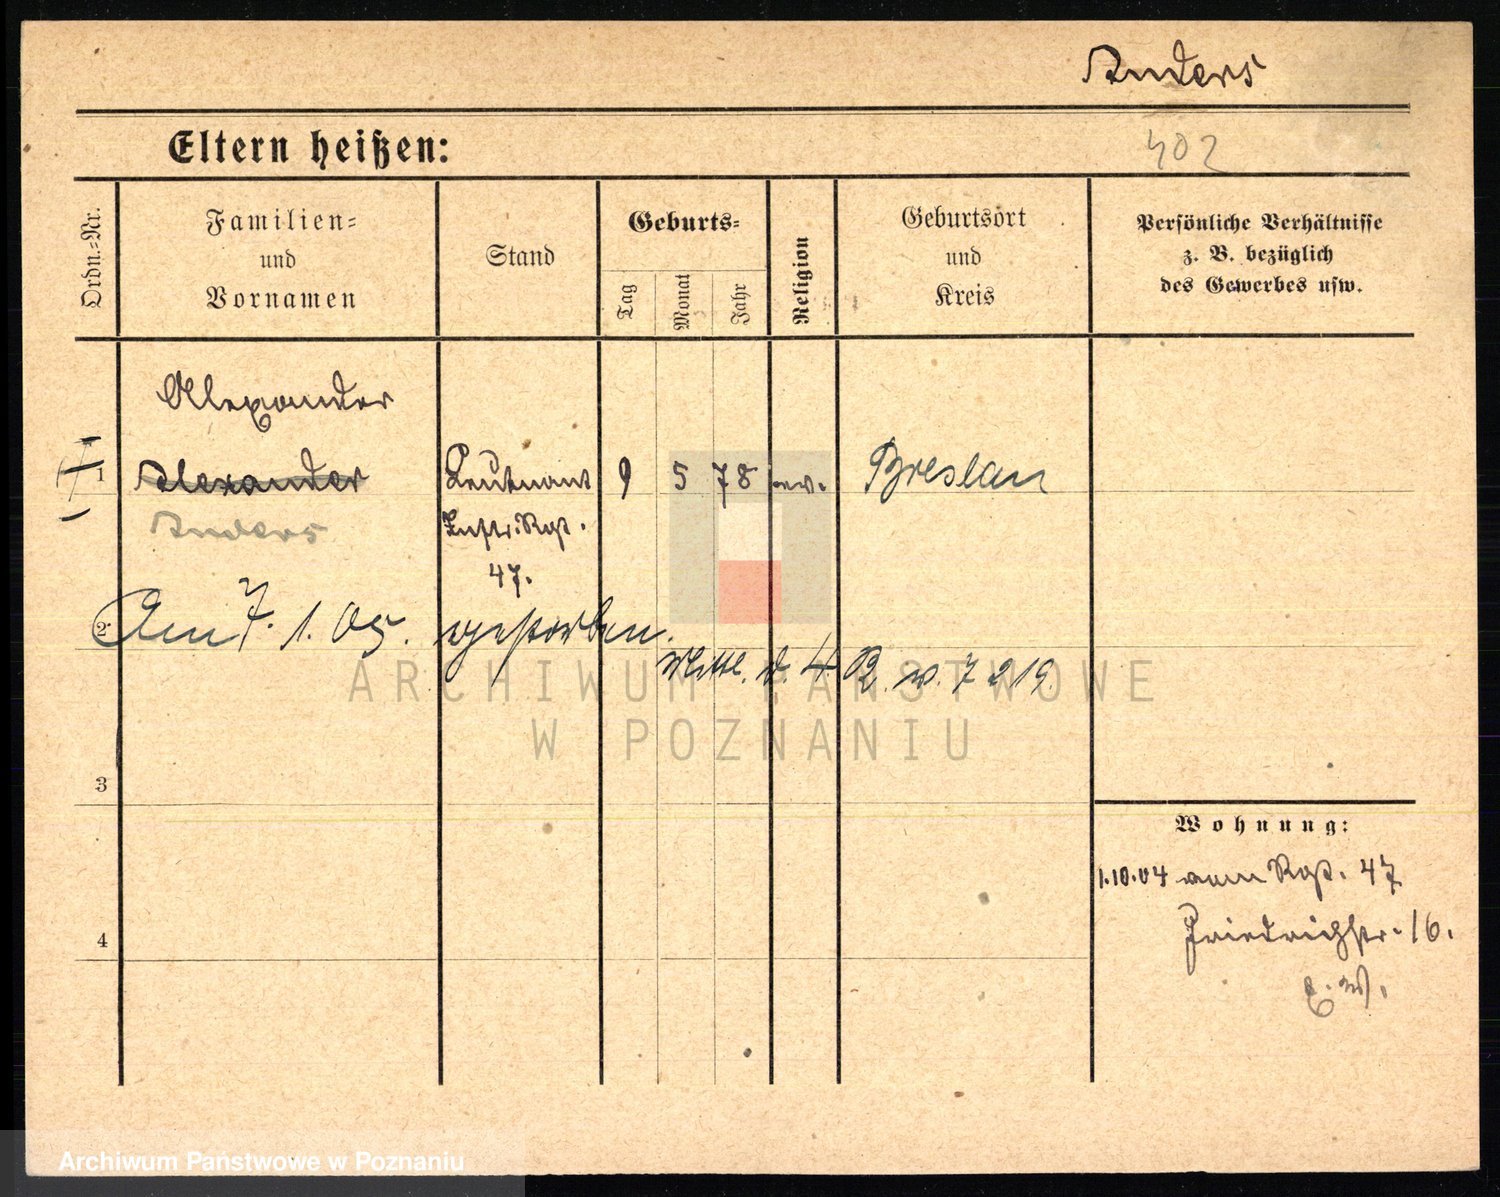 Anders
Eltern heißen:
402
Ordn.=Nr.
Familien=
und
Vornamen
Stand
Geburts=
Tag
Monat
Jahr
Religion
Geburtsort
und
Kreis
Persönliche Verhältnisse
z. B. bezüglich
des Gewerbes usw.
Alexander
1 Alexander Leutnant 9 5 78 ev. Breslau
Anders Inftr. Rgt.
47.
2 Am 7. 1. 05. gestorben.
Mittl. d. 4 B. v. 7 219
ARCHIWUM PAŃSTWOWE
W POZNANIU
3
Wohnung:
1.10.04 vom Rgt. 47
Friedrichstr. 16.
4
Archiwum Państwowe w Poznaniu